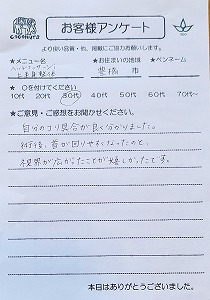 お客様アンケート
より良い容質・他、掲載にご協力お願いします。
★メニュー名 ★お住まいの地域 ★ペンネーム
上半身整体 豊橋 市
★ ○を付けてください
10代 20代 30代 40代 50代 60代 70代~
★ご意見・ご感想をお聞かせください。
自分のコリ具合が良く分かりました。
術後、首が回りやすくなったのと、
視界が広がったことが嬉しかったです。
本日はありがとうございました。